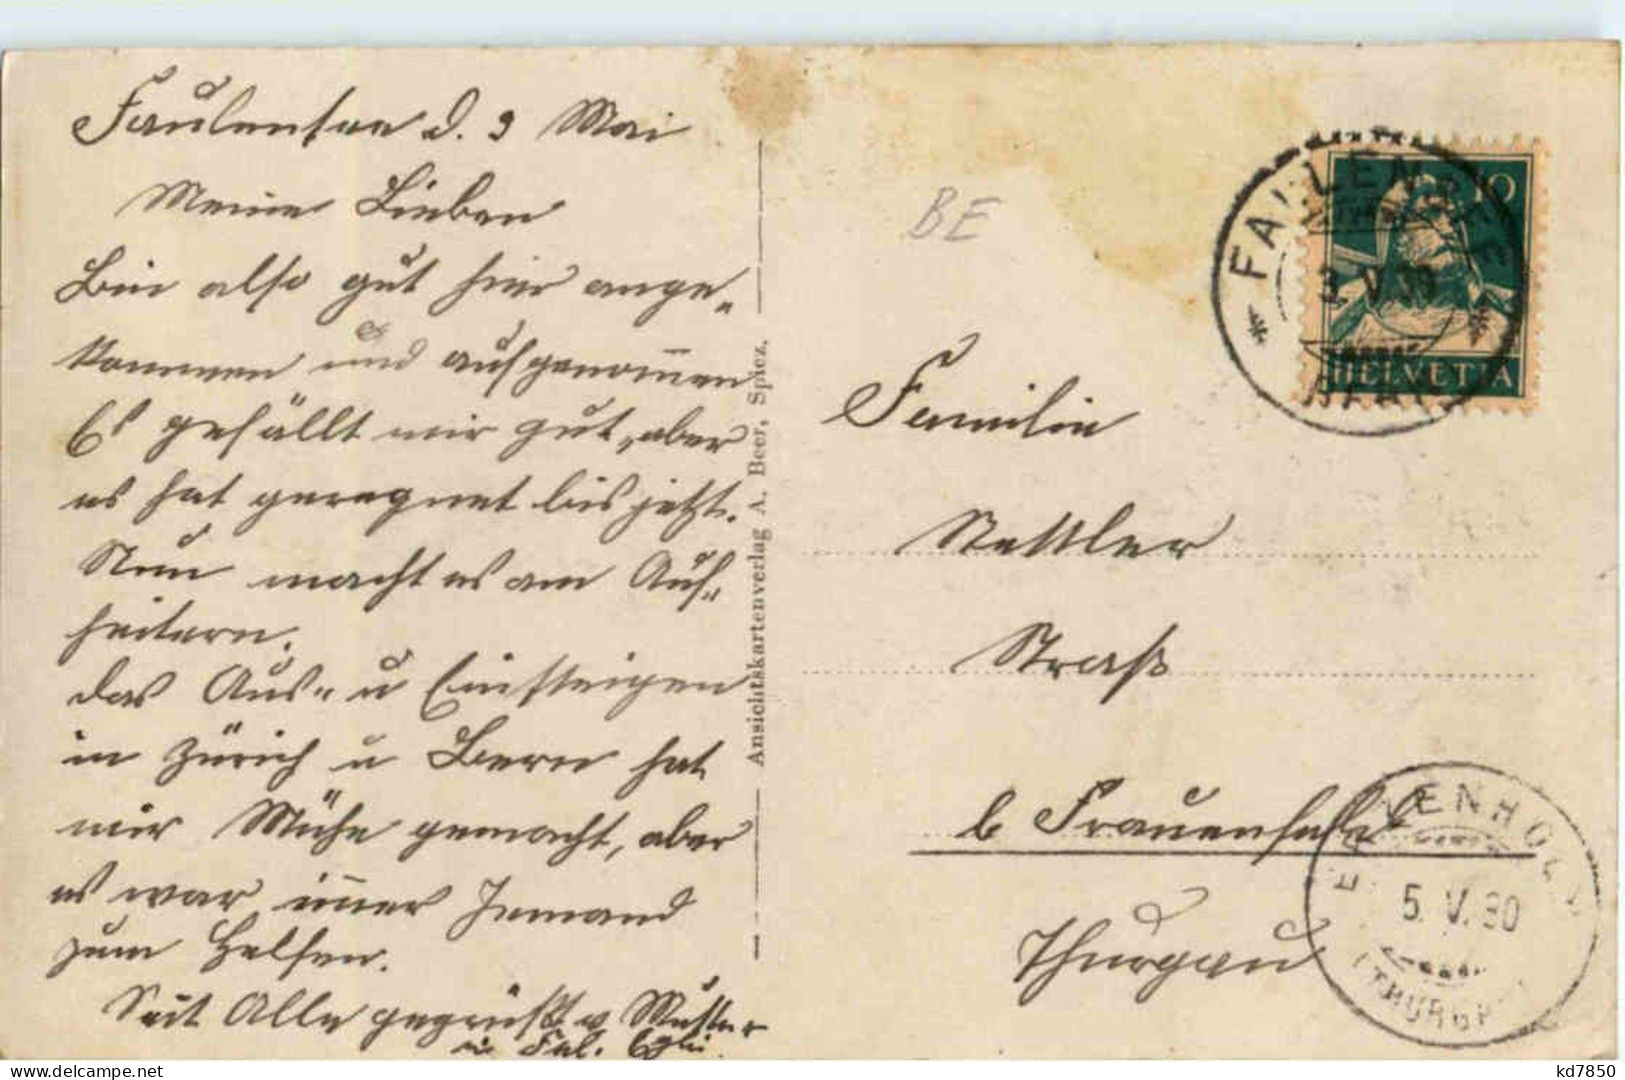 Faulensee d. 3 Mai
Meine Lieben
Bin also gut hier ange-
kommen und aufgenommen
Es gefällt mir gut, aber
es hat geregnet bis jetzt.
Nun macht es am Auf-
heitern.
das Aus- u Einsteigen
in Zürich u Bern hat
mir Mühe gemacht, aber
es war immer Jemand
zum Helfen.
Seit Alle gegrüßt v Mutter
u Fal. Egli.
Ansichtskartenverlag A. Beer, Spiez.
BE
FAULENSEE
3. V. 30
10
HELVETIA
Familie
Stettler
Straß
b Frauenfeld
Thurgau
5. V. 30
(THURGAU)
kd7850